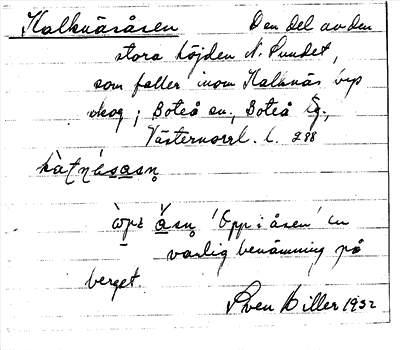 Kalknäsåsen Den del av den
stora höjden N. Sundet,
som faller inom Kalknäs by
skog; Boteå sn, Boteå tg.,
Västernorrl. l. 298
'Opp i åsen' en
vanlig benämning på
berget.
Sven Hiller 1932